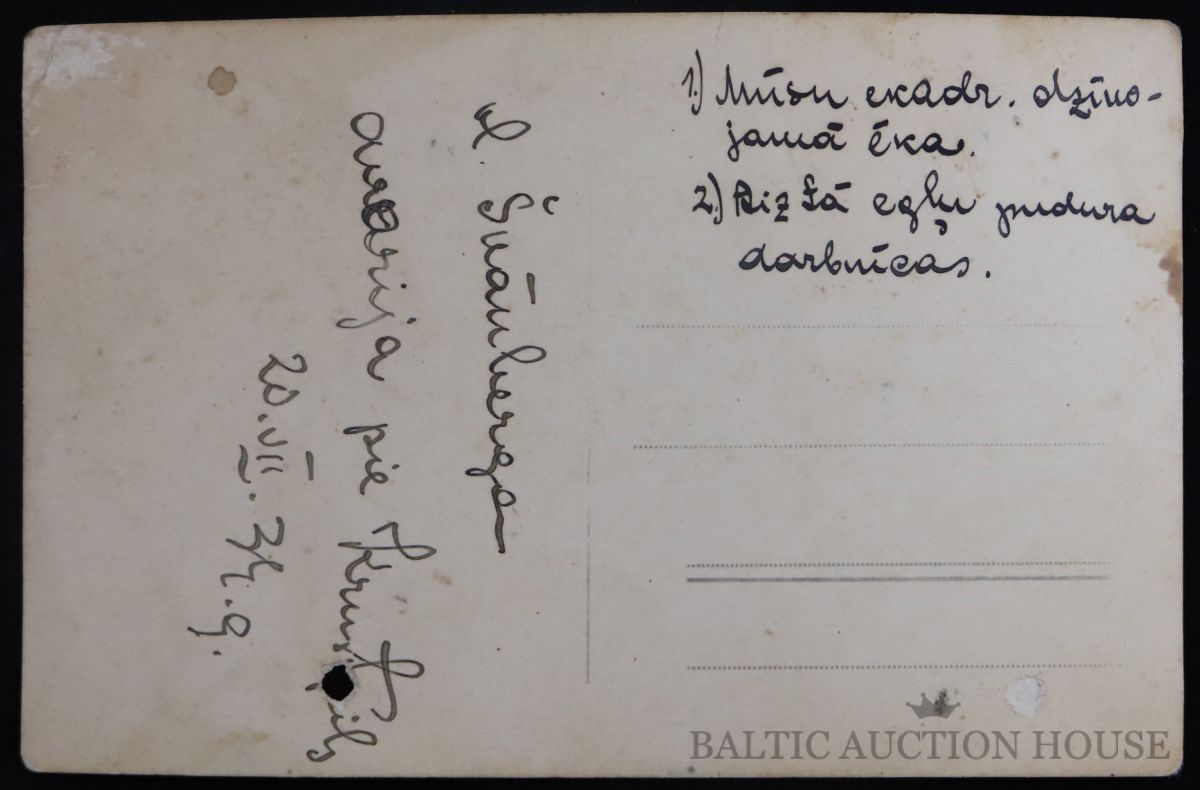 1.) Mūsu ekadr. dzīvo-
jamā ēka.
2.) Aiz šā egļu pudura
darbnīcas.
Švānberga
avarija pie
20.VII.34.g.
BALTIC AUCTION HOUSE